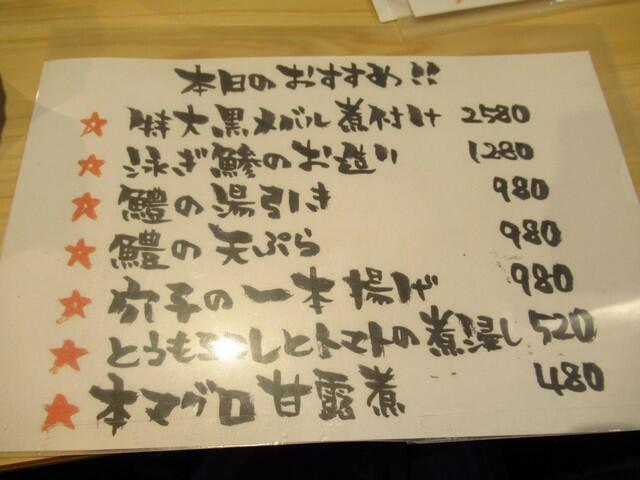 本日のおすすめ!!
☆ 特大黒メバル煮付け 2580
☆ 泳ぎ鯵のお造り 1280
★ 鱧の湯引き 980
★ 鱧の天ぷら 980
★ 穴子の一本揚げ 980
★ とうもろこしとトマトの煮浸し 520
★ 本マグロ甘露煮 480